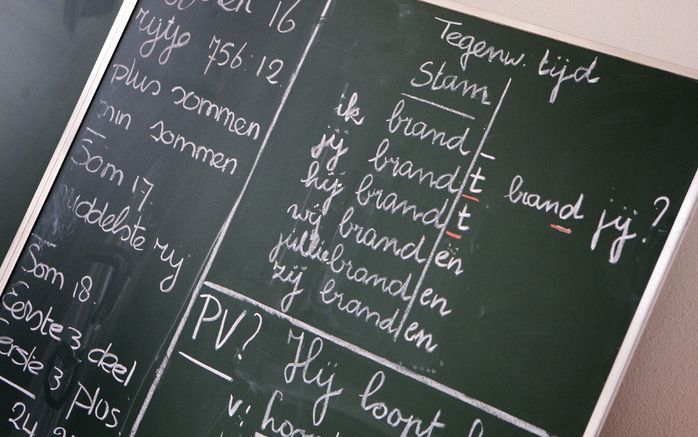 16
rijtje 756:12
plus sommen
min sommen
Som 17
middelste rij
Som 18
Eerste 3 deel
Eerste 3 plus
24
Tegenw. tijd
Stam
ik brand –
jij brand t brand jij?
hij brand t
wij brand en
jullie brand en
zij brand en
PV? Hij loopt
v: